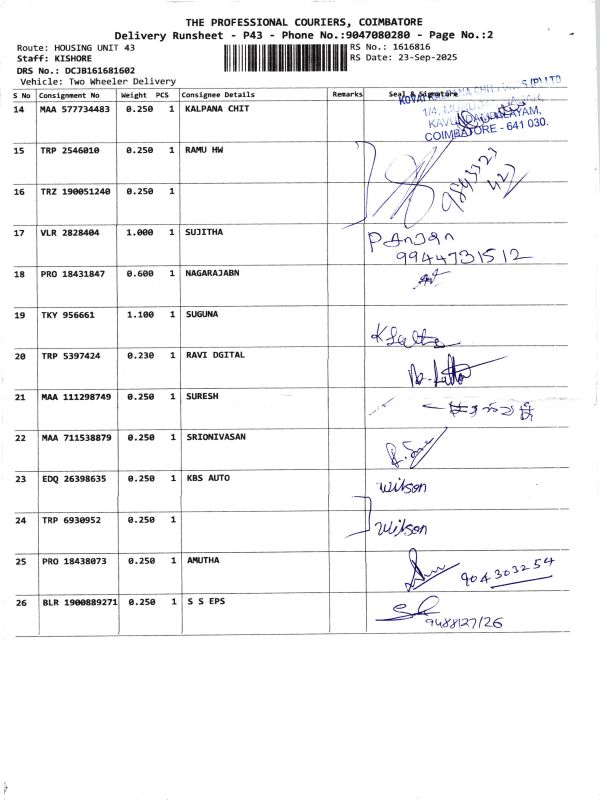 THE PROFESSIONAL COURIERS, COIMBATORE
Delivery Runsheet - P43 - Phone No.:9047080280 - Page No.:2
Route: HOUSING UNIT 43
RS No.: 1616816
Staff: KISHORE
RS Date: 23-Sep-2025
DRS No.: DCJB161681602
Vehicle: Two Wheeler Delivery
S No Consignment No Weight PCS Consignee Details Remarks Seal & Signature
14 MAA 577734483 0.250 1 KALPANA CHIT
COIMBATORE - 641 030.
15 TRP 2546010 0.250 1 RAMU HW
16 TRZ 190051240 0.250 1
17 VLR 2828404 1.000 1 SUJITHA
9944731512
18 PRO 18431847 0.600 1 NAGARAJABN
19 TKY 956661 1.100 1 SUGUNA
20 TRP 5397424 0.230 1 RAVI DGITAL
21 MAA 111298749 0.250 1 SURESH
22 MAA 711538879 0.250 1 SRIONIVASAN
23 EDQ 26398635 0.250 1 KBS AUTO Wilson
24 TRP 6930952 0.250 1 Wilson
25 PRO 18438073 0.250 1 AMUTHA 904303254
26 BLR 1900889271 0.250 1 S S EPS
9488127126